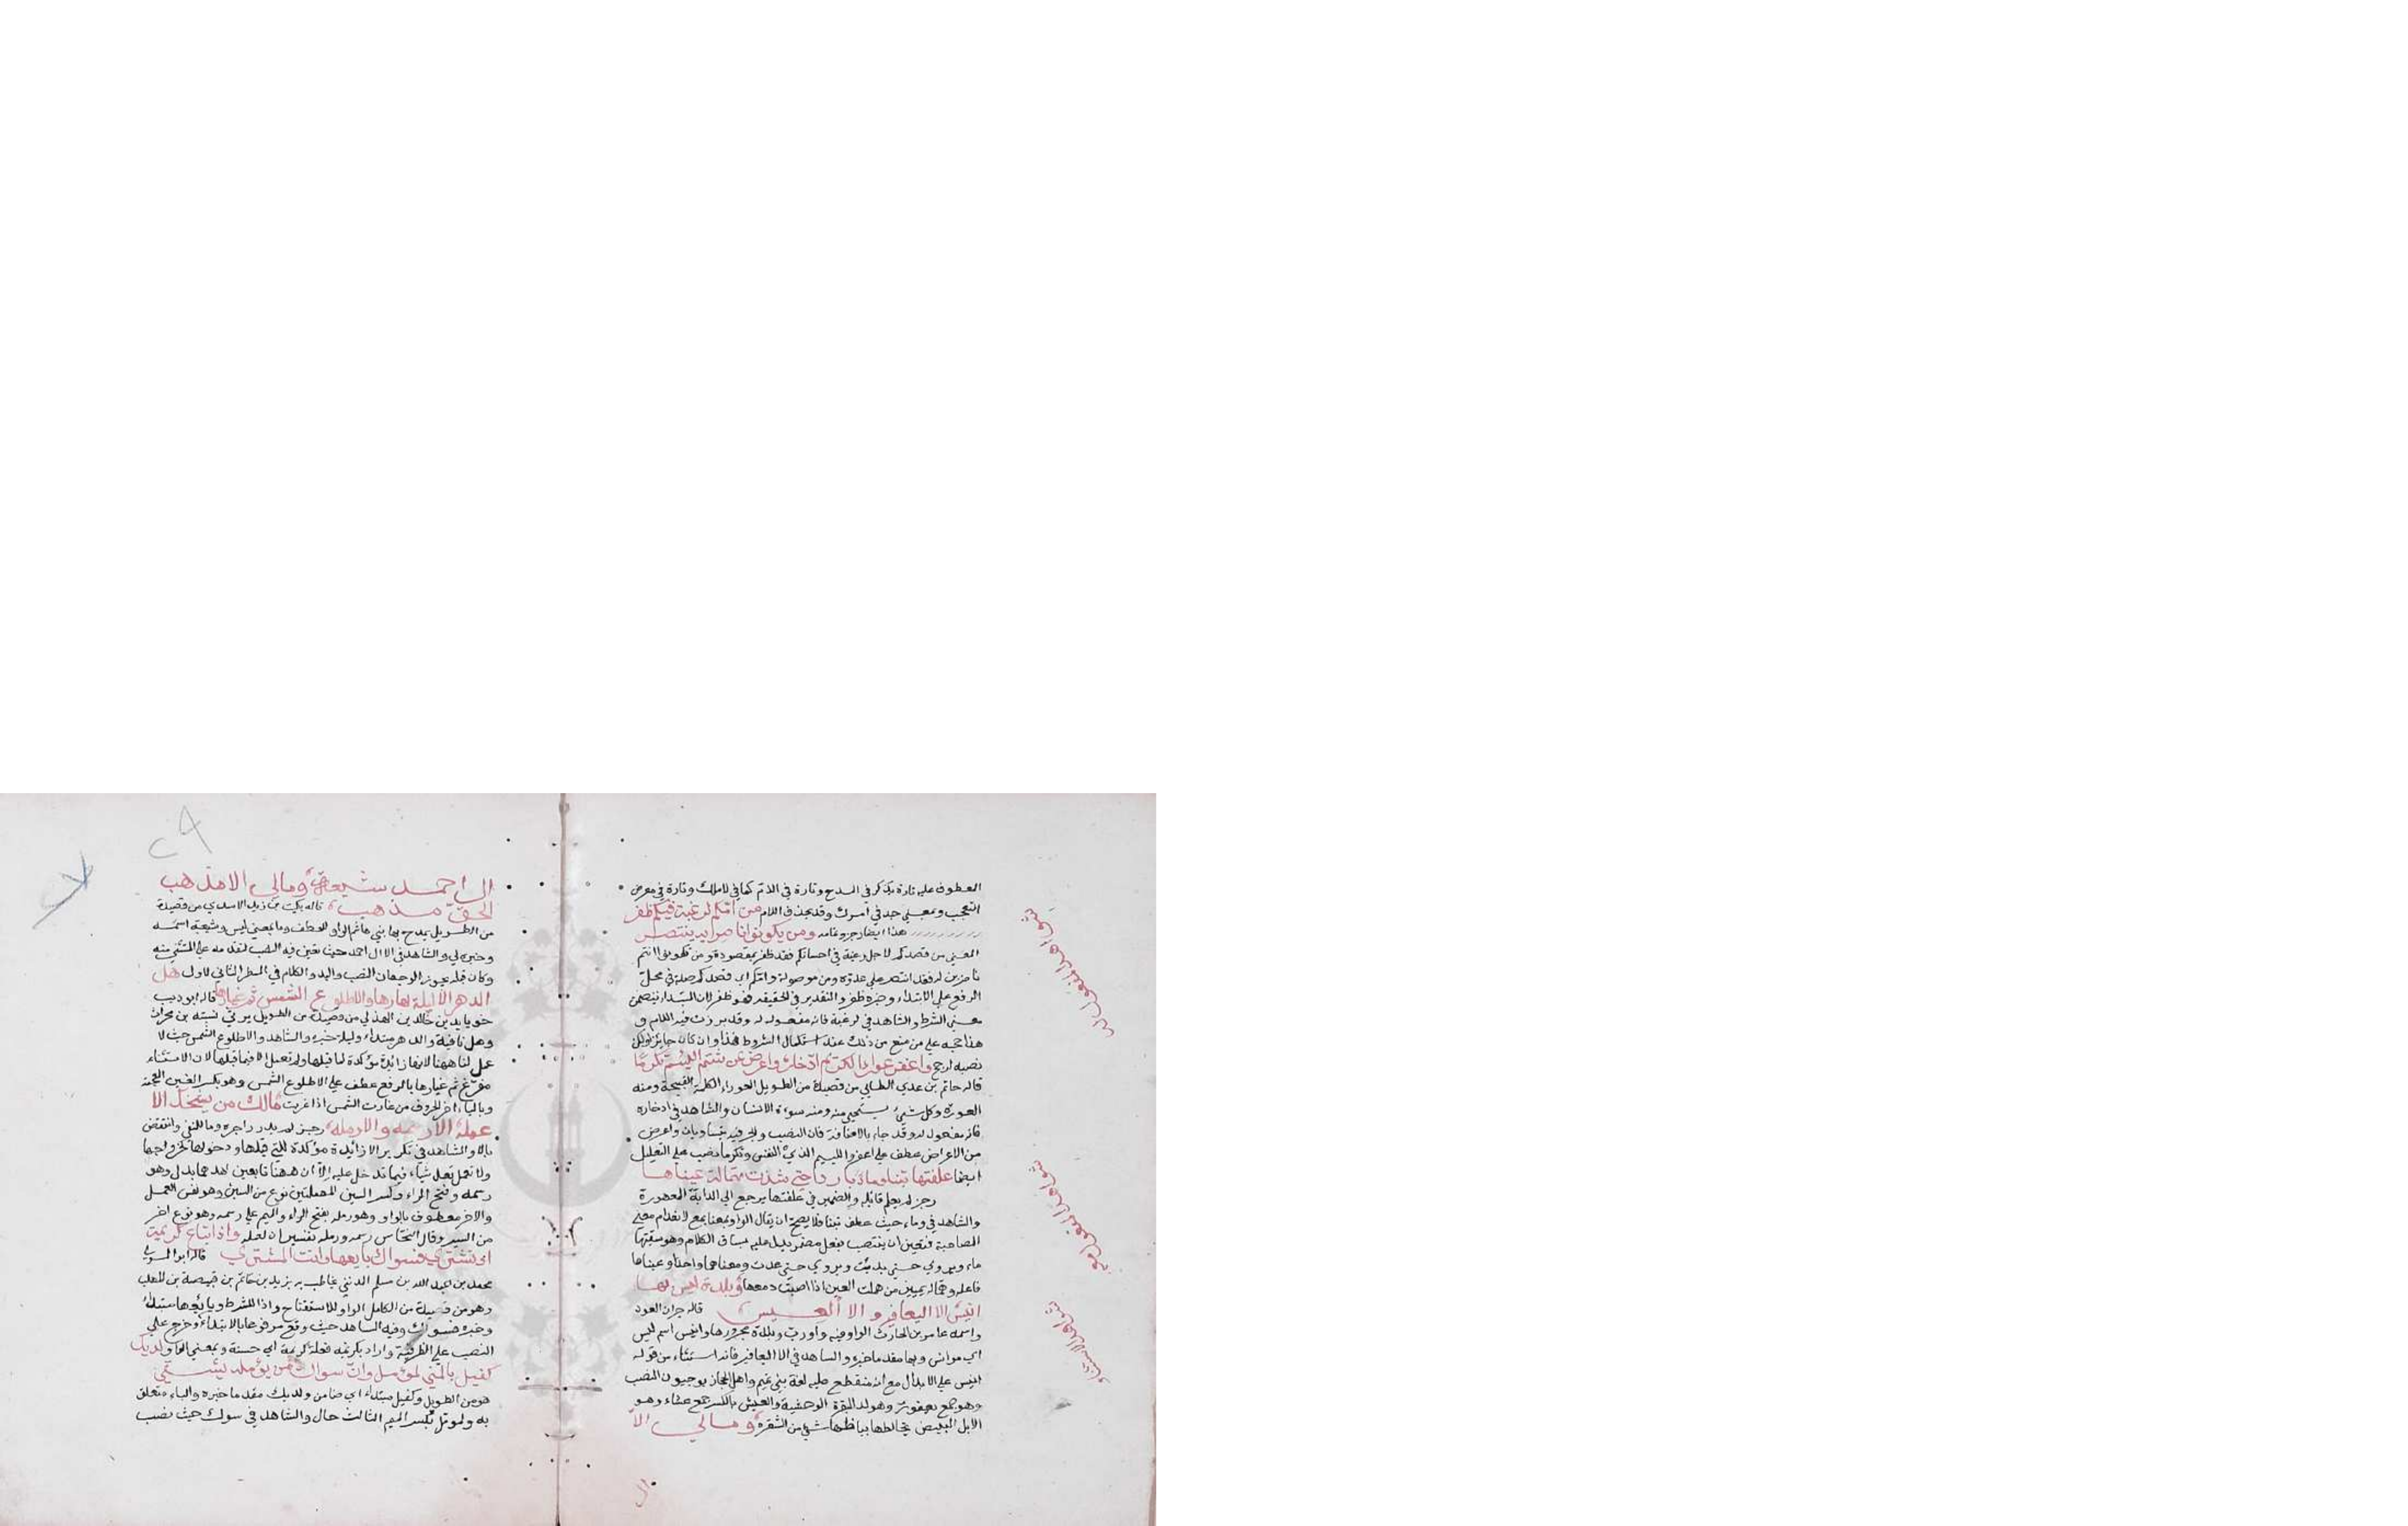 المعطوف عليه تارة يذكر في المدح وتارة في الذم كما في لاملك وتارة في معرض
التعجب وبمعنى جد في امرك وقد يحذف اللام من امّكم لرغبة فيكم ظفر
هذا ايضا رجز وتمامه ومن تكونوا ناصريه ينتصر
المعنى من قصدكم لاجل رغبة في احسانكم فقد ظفر بمقصوده ومن تكونوا انتم
ناصرين له فقد انتصر على عدوه ومن موصولة وامكم اي قصدكم صلة في محل
الرفع على الابتداء وخبره ظفر والتقدير في الحقيقة فهو ظفر لان المبتدا يتضمن
معنى الشرط والشاهد في لرغبة فانه مفعول له وقد برزت فيه اللام و
هذا حجة على من منع من ذلك عند استكمال الشروط فهذا وان كان جايزا ولكن
نصبه ارجح واغفر عوراء الكريم ادخاره واعرض عن شتم اللئيم تكرما
قاله حاتم بن عدي الطائي من قصيدة من الطويل العوراء الكلمة القبيحة ومنه
العورة وكل شيء يستحيى منه ومنه سوءة الانسان والشاهد في ادخاره
فانه مفعول له وقد جاء بالاضافة فان النصب والجر فيه يتساويان واعرض
من الاعراض عطف على اغفر واللئيم الذي النفس وتكرما نصب على التعليل
ايضا علفتها تبنا وماء باردا حتى شتت همالة عيناها
رجز لم يعلم قائله والضمير في علفتها يرجع الى الدابة المعهودة
والشاهد في وماء حيث عطف تبنا فلا يصح ان يقال الواو بمعنا مع لانعدام معنى
المصاحبة فتعين ان ينتصب بفعل مضمر يدل عليه سياق الكلام وهو سقيتها
ماء ويروي حتى بدت ويروي حتى غدت ومعناهما واحد وعيناها
فاعله وهمالة تمييز من هملت العين اذا اصبت دمعها وبلدة ليس بها
انيس الا اليعافير والا العيس قاله جران العود
واسمه عامر بن الحارث الواو فيه واو رب وبلدة مجرورها وانيس اسم ليس
اي موانس وبها مقدما خبره والشاهد في الا اليعافير فانه استثناء من قوله
انيس على الابدال مع انه منقطع عليه لغة بني تميم واهل الحجاز يوجبون النصب
وهو جمع يعفور وهو ولد البقرة الوحشية والعيس بالكسر جمع عيساء وهو
الابل البيض يخالطها بياضها شيء من الشقرة ومالي الا
ال
شواهد المفعول له
شواهد المفعول معه
شواهد الاستثناء
ال احمد شيعة ومالي الا مذهب
الحق مذهب قاله كميت بن زيد الاسدي من قصيدة
من الطويل يمدح بها بني هاشم الواو للعطف وما بمعنى ليس وشيعة اسمه
وخبره لي والشاهد في الا ال احمد حيث تعين فيه النصب لتقدمه على المستثنى منه
وكان قبله يجوز الوجهان النصب والبدل والكلام في الشطر الثاني كالاول هل
الدهر الا ليلة ونهارها والا طلوع الشمس ثم غيارها قاله ابو ذويب
خويلد بن خالد بن الهذلي من قصيدة من الطويل يرثي نشيبة بن محرث
وهل نافية والدهر مبتداء وليلة خبره والشاهد والا طلوع الشمس حيث لا
عمل لنا ههنا لانها زائدة مؤكدة لما قبلها ولم تعمل الا فيما قبلها لان الاستثناء
مفرغ ثم غيارها بالرفع عطف على الا طلوع الشمس وهو بكسر الغين المعجمة
وبالياء اخر الحروف من غارت الشمس اذا غربت مالك من شيخك الا
عمله الا رسيمه والا رمله رجز لم يدر راجزه وما للنفي وانتقض
بالا والشاهد في تكرير الا زائدة مؤكدة للتي قبلها ودخولها كخروجها
ولا تعمل بعد شيئا فيما تدخل عليه الا ان ههنا تابعين احدهما بدل وهو
رسمه وفتح الراء وكسر السين المهملتين نوع من السير وهو نفس العمل
والاخر معطوف بالواو وهو رمله بفتح الراء والميم على رسمه وهو نوع اخر
من السير وقال النحاس رسمه ورمله تفسيران لعمله واذا تباع كريمة
او تشترى فسواك بايعها وانت المشتري قاله ابو المولى
محمد بن عبد الله بن مسلم المدني يخاطب به يزيد بن حاتم بن قبيصة بن المهلب
وهو من قصيدة من الكامل الواو للاستفتاح واذا للشرط وبايعها مبتداء
وخبره فسواك وفيه الشاهد حيث وقع مرفوعا بالابتداء وخرج على
النصب على الظرفية واراد بكريمة فعلة كريمة اي حسنة وبمعنى الواو لديك
كفيل بالمنى لمؤمل وان سواك من يؤمله يشقى
هو من الطويل وكفيل مبتداء اي ضامن ولديك مقدما خبره والباء متعلق
به ولمومل بكسر الميم الثالث حال والشاهد في سواك حيث نصب